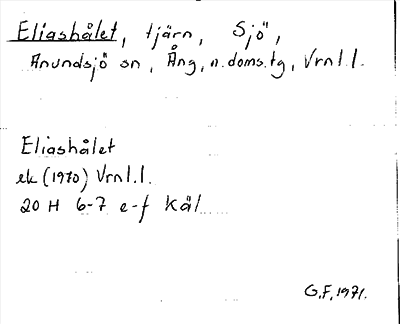 Eliashålet, tjärn, Sjö,
Anundsjö sn, Ång, n. doms.tg, Vrnl.l.
Eliashålet
ek (1970) Vrnl.l.
20 H 6-7 e-f Kål
G.F, 1971.